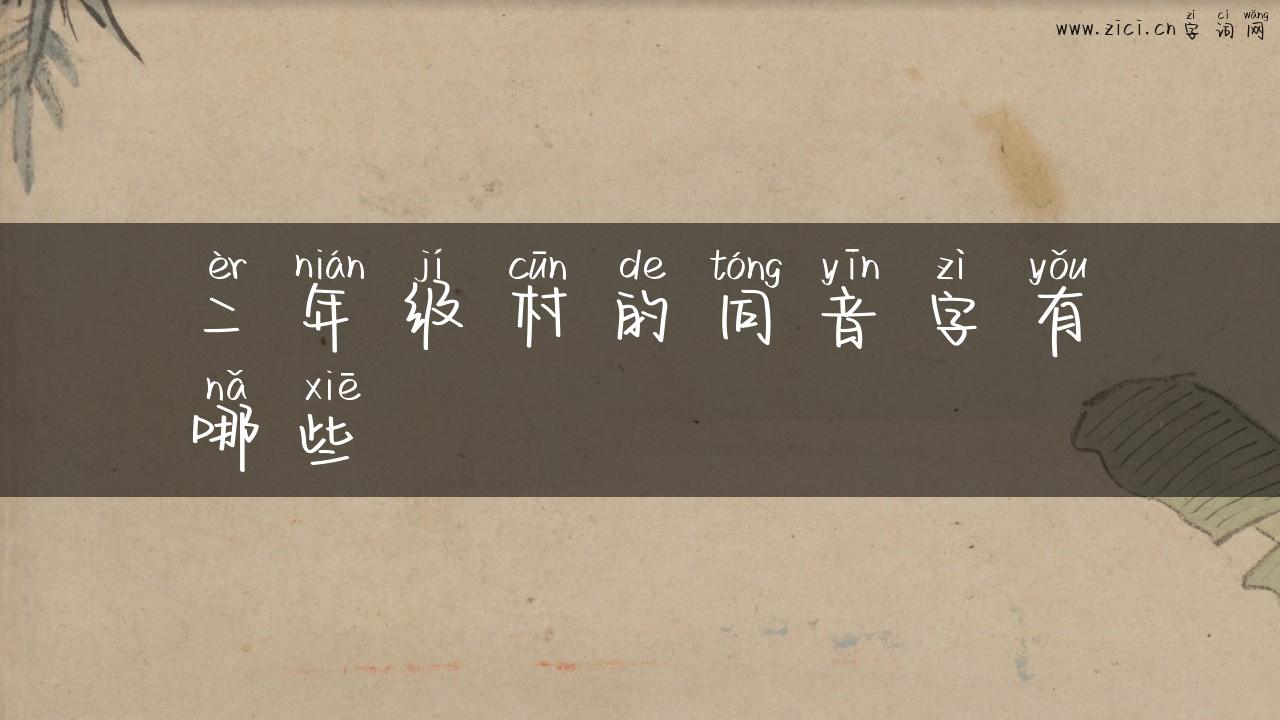 zì cí wǎng
www.zici.cn 字词网
èr nián jí cūn de tóng yīn zì yǒu
二年级村的同音字有
nǎ xiē
哪些